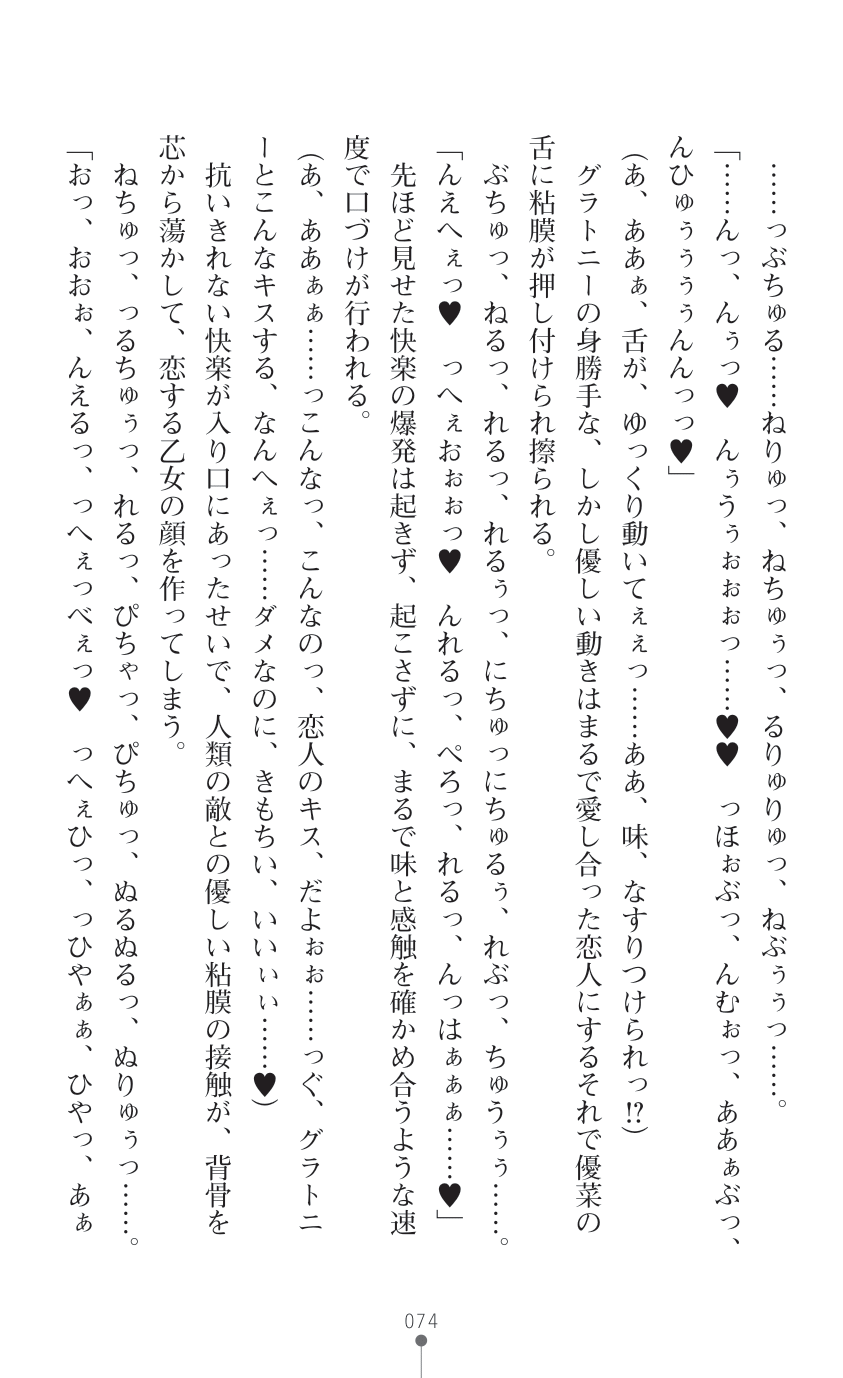 ……っぶちゅる……ねりゅっ、ねちゅぅっ、るりゅりゅっ、ねぶぅぅっ……。
「……んっ、んぅっ♥　んぅうぅぉぉぉっ……♥♥　っほぉぶっ、んむぉっ、ああぁぶっ、
んひゅぅぅぅぅんんっっ♥」
（あ、ああぁ、舌が、ゆっくり動いてぇぇっ……ああ、味、なすりつけられっ!?）
　グラトニーの身勝手な、しかし優しい動きはまるで愛し合った恋人にするそれで優菜の
舌に粘膜が押し付けられ擦られる。
　ぶちゅっ、ねるっ、れるっ、れるぅっ、にちゅっにちゅるぅ、れぶっ、ちゅうぅぅ……。
「んえへぇっ♥　っへぇおぉぉっ♥　んれるっ、ぺろっ、れるっ、んっはぁぁぁ……♥」
　先ほど見せた快楽の爆発は起きず、起こさずに、まるで味と感触を確かめ合うような速
度で口づけが行われる。
（あ、ああぁぁ……っこんなっ、こんなのっ、恋人のキス、だよぉぉ……っぐ、グラトニ
ーとこんなキスする、なんへぇっ……ダメなのに、きもちい、いいぃぃ……♥）
　抗いきれない快楽が入り口にあったせいで、人類の敵との優しい粘膜の接触が、背骨を
芯から蕩かして、恋する乙女の顔を作ってしまう。
　ねちゅっ、っるちゅぅっ、れるっ、ぴちゃっ、ぴちゅっ、ぬるぬるっ、ぬりゅぅっ……。
「おっ、おおぉ、んえるっ、っへぇっべぇっ♥　っへぇひっ、っひやぁぁ、ひやっ、あぁ
074